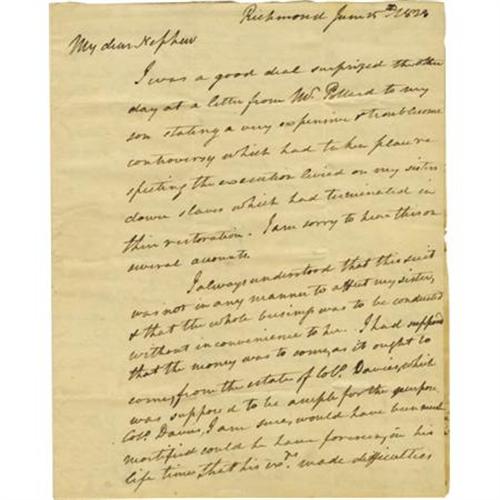 Richmond June 5th 1823
My dear Nephew
I was a good deal surprized the other
day at a letter from Mr. Pollard to my
son stating a very expensive & troublesome
controversy which had taken place re-
specting the execution levied on my sisters
dower slaves which had terminated in
their restoration. I am sorry to hear this on
several accounts.
I always understood that this suit
was not in any manner to affect my sister,
& that the whole business was to be conducted
without inconvenience to her. I had supposed
that the money was to come, as it ought to
come, from the estate of Colo. Davies, which
was supposed to be ample for the purpose.
Colo. Davies, I am sure, would have been much
mortified could he have foreseen, in his
life time, that his exrs. made difficulties